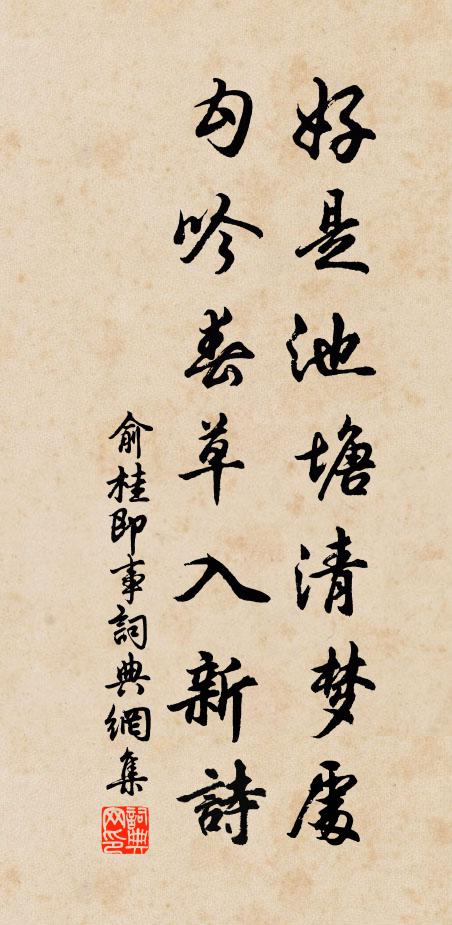 好是池塘清梦處
勾吟春草入新詩
俞桂即事詞典網集
詞典網印